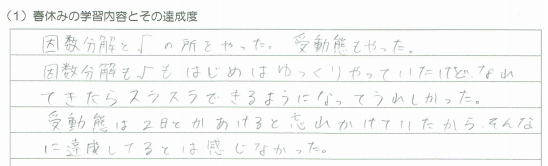 (1) 春休みの学習内容とその達成度
因数分解と√の所をやった。受動態もやった。
因数分解も√もはじめはゆっくりやっていたけど、なれ
てきたらスラスラできるようになってうれしかった。
受動態は2日とかあけると忘れかけていたから、そんな
に達成してるとは感じなかった。